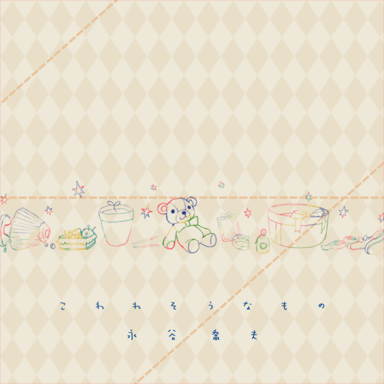 こわれそうなもの
永谷喬夫